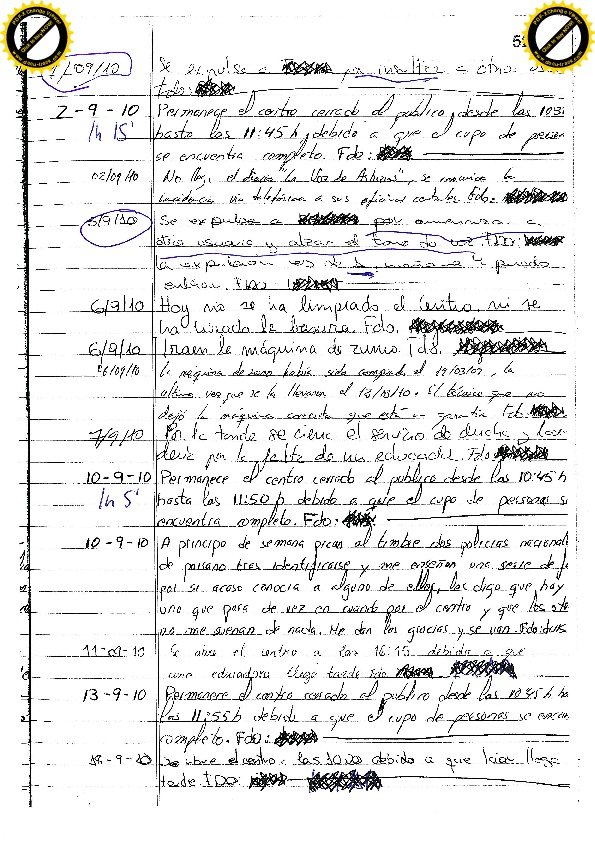 PDF-XChange Viewer
Click to buy NOW!
www.docu-track.com
PDF-XChange Viewer
Click to buy NOW!
www.docu-track.com
/09/10 Se expulsa a por insultar a otro
Fdo:
2-9-10 Permanece el centro cerrado al publico desde las 10
1h 15' hasta las 11:45h, debido a que el cupo de person
se encuentra completo. Fdo:
02/09/10 No llega el diario "La Voz de Asturias", se
via telefónica a sus oficinas centrales. Fdo:
5/9/10 Se expulsa a por amenazar a
otro usuario y alzar el tono de voz FDO:
la expulsion es de
entrar. FDO
6/9/10 Hoy no se ha limpiado el Centro ni se
ha tirado la basura. Fdo.
6/9/10 Traen la máquina de zumo. Fdo.
06/09/10 la máquina de zumo había sido comprada el 19/03/09, la
última vez que se la llevaron el 18/03/10. El técnico que nos
dejó la máquina comenta que está en garantía Fdo:
7/9/10 Por la tarde se cierra el servicio de ducha y lavan
deria por la falta de un educador. Fdo
10-9-10 Permanece el centro cerrado al publico desde las 10:45h
1h 5' hasta las 11:50 h debido a que el cupo de personas se
encuentra completo. Fdo:
10-9-10 A principo de semana pican al timbre dos policias nacional
de paisano tras identificarse y me enseñan una serie de f
por si acaso conocia a alguno de ellos, les digo que hay
uno que pasa de vez en cuando por el centro y que los otr
no me suenan de nada. Me dan las gracias y se van. Fdo:
11-09-10 Se abre el centro a las 16:15 debido a que
una educadora llega tarde Fdo
13-9-10 Permanece el centro cerrado al publico desde las 10:45 h ha
las 11:55h debido a que el cupo de personas se encuen
completo. Fdo:
18-9-10 Se abre el centro a las debido a que llega
tarde FDO